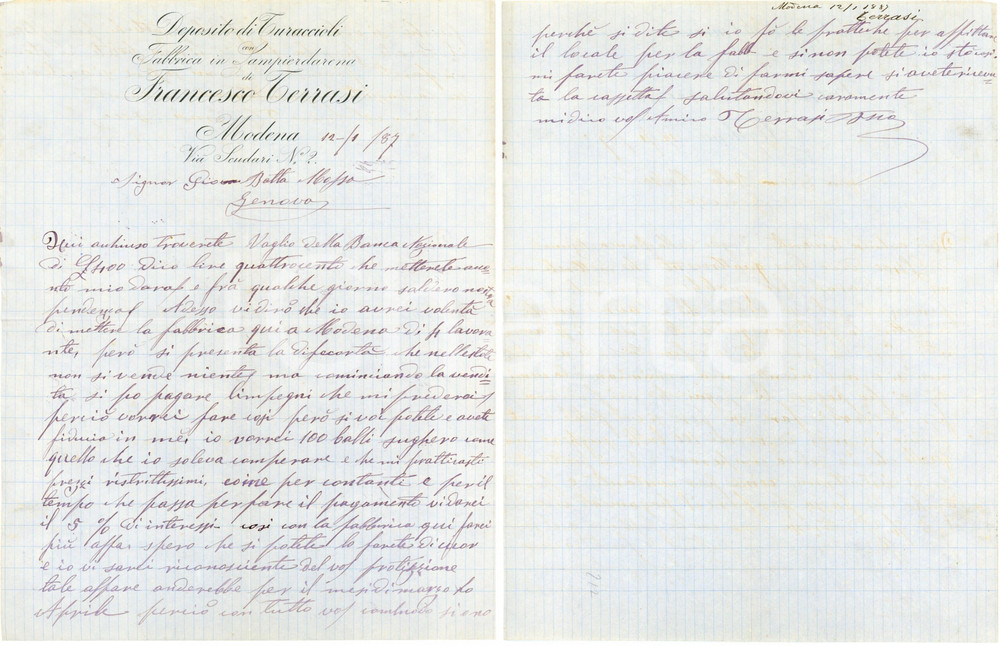 Deposito di Turaccioli
con
Fabbrica in Sampierdarena
di
Francesco Terrasi
Modena 12-1/87
Via Scudari N.° 2.
Signor Giov Batta Mosso
Genova
Qui anchiuso troverete Vaglio della Banca Nazionale
di £400 dico lire quattrocento che metterete
mio e frà qualche giorno salderò
Adesso vi dirò che io avrei volontà
di mettere la fabbrica qui a Modena di 4 lavora
nte, però si presenta la difecortà che nell'estate
non si vende niente, ma cominciando la vendi-
ta, si po pagare l'impegni che mi prederai,
perciò vorrei fare così però si voi potete e avete
fiducia in me, io vorrei 100 balli sughero come
quello che io soleva comperare e che mi pratticasti
prezzi ristrittissimi, come per contanti e per il
tempo che passa per fare il pagamento vi darei
il 5 % di interessi così con la fabbrica qui farei
più affa. spero che si potete lo farete di cuor
e io vi sarei riconosciente del vos protizzione
tale affare anderebbe per il mesi di marzo to
Aprile perciò con tutto vos comhudo si ono
Modena 12/1 1887
Terrasi
perchè si dite si io fò le pratteche per affittare
il locale per la fabb e si non potete io stò così
mi farete piacere di farmi sapere si avete riceu-
ta la cassetta salutandovi caramente
mi dico vos Amico Terrasi Fsco